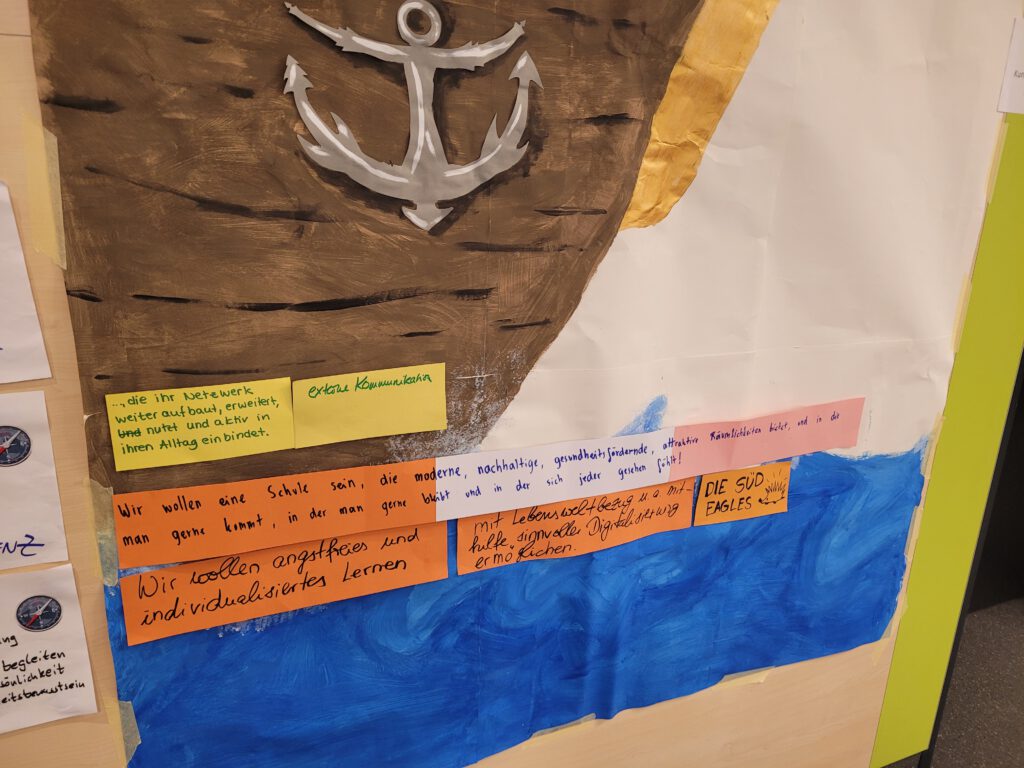 ...die ihr Netzwerk
weiter aufbaut, erweitert,
und nutzt und aktiv in
ihren Alltag einbindet.
externe Kommunikation
Wir wollen eine Schule sein, die moderne, nachhaltige, gesundheitsfördernde, attraktive Räumlichkeiten bietet, und in die
man gerne kommt, in der man gerne bleibt und in der sich jeder gesehen fühlt!
Wir wollen angstfreies und
individualisiertes Lernen
mit Lebensweltbezug u.a. mit-
hilfe signvoller Digitalisierung
ermöglichen.
DIE SÜD
EAGLES
ENZ
ung
begleiten
sönlichkeit
eitsbewusstsein